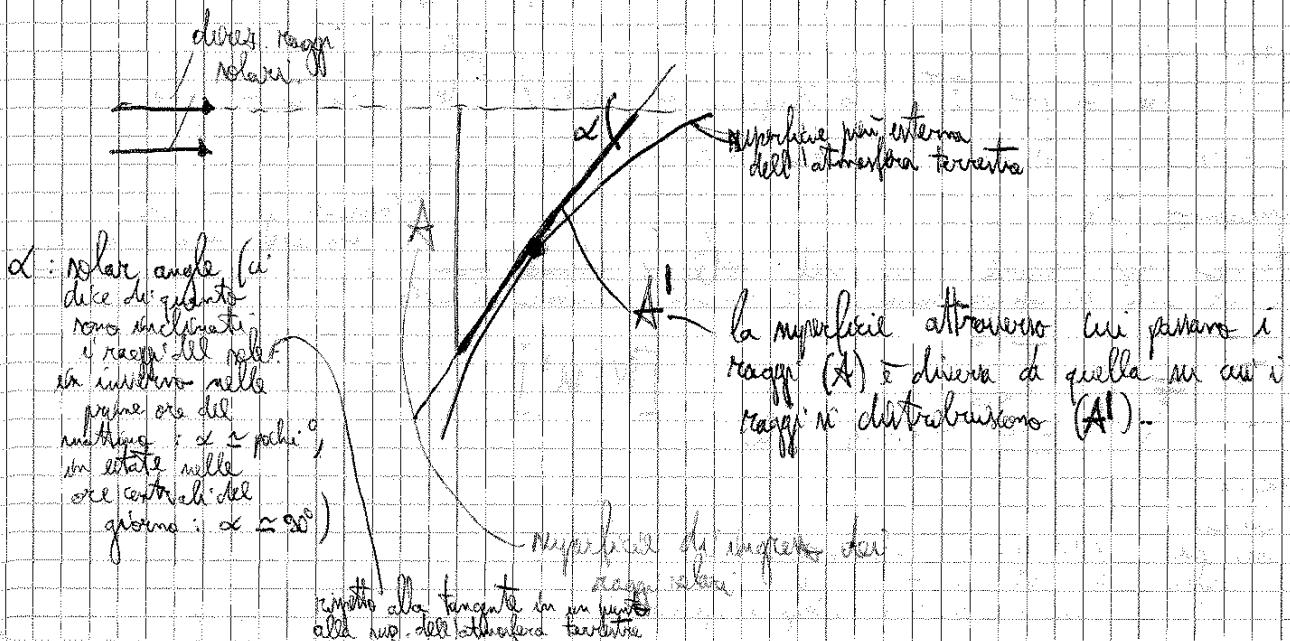 direz. raggi
solari.
α
superficie più esterna
dell'atmosfera terrestre
A
α : solar angle (ci
dice di quanto
sono inclinati
i raggi del sole:
in inverno nelle
prime ore del
mattino : α ≃ pochi °,
in estate nelle
ore centrali del
giorno : α ≃ 90°)
A'
la superficie attraverso cui passano i
raggi (A) è diversa da quella su cui i
raggi si distribuiscono (A')..
superficie di ingresso dei
raggi solari
rispetto alla tangente in un punto
alla sup. dell'atmosfera terrestre